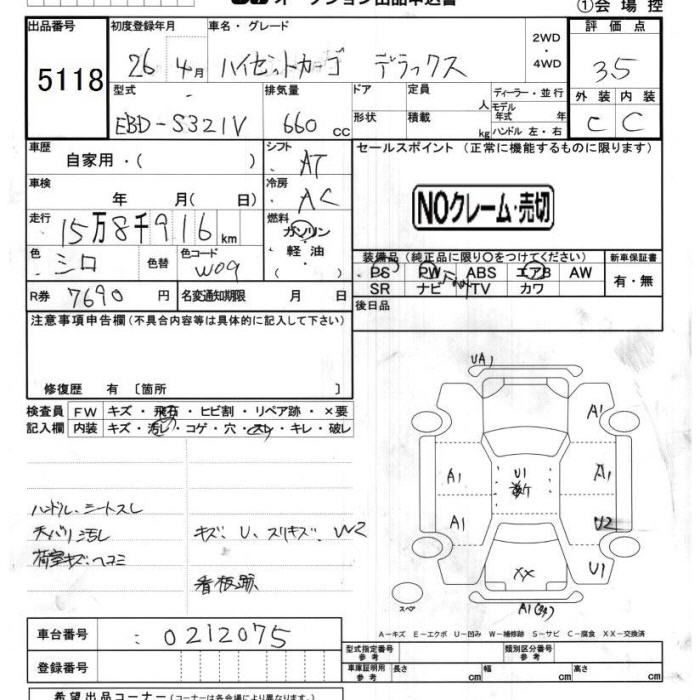 オークション出品申込書
①会場控
出品番号
5118
初度登録年月
26 4月
車名・グレード
ハイゼットカーゴ デラックス
2WD
・
4WD
評価点
3.5
外装 内装
C C
型式
EBD-S321V
排気量
660 CC
ドア
定員 人
形状
積載 kg
ディーラー・並行
モデル年式 年
ハンドル 左・右
車歴
自家用・( )
シフト
AT
セールスポイント (正常に機能するものに限ります)
NOクレーム・売切
車検
年 月( 日)
冷房
AC
走行
15万8千916 km
燃料
ガソリン
・
軽油
・
( )
色
シロ
色替
色コード
W09
装備品 (純正品に限り〇をつけてください)
新車保証書
PS PW ABS エアB AW
有・無
SR ナビ TV カワ
R券
7690 円
名変通知期限 月 日
後日品
注意事項申告欄 (不具合内容等は具体的に記入して下さい)
修復歴 有 〔箇所 〕
検査員
記入欄
FW キズ・飛石・ヒビ割・リペア跡・×要
内装 キズ・汚レ・コゲ・穴・スレ・キレ・破レ
ハンドル、シートスレ
天バリ汚レ
荷室キズ・ヘコミ
キズ、U、スリキズ、W2
看板跡
UA1
A1
A1
U1
A1
A1
U2
XX
U1
A1
スペア
A-キズ E-エクボ U-凹み W-補修跡 S-サビ C-腐食 XX-交換済
車台番号
: 0212075
登録番号
型式指定番号
参考
類別区分番号
参考
車庫証明用
参考
長さ cm
幅 cm
高さ cm
希望出品コーナー (コーナーは各会場により異なります)